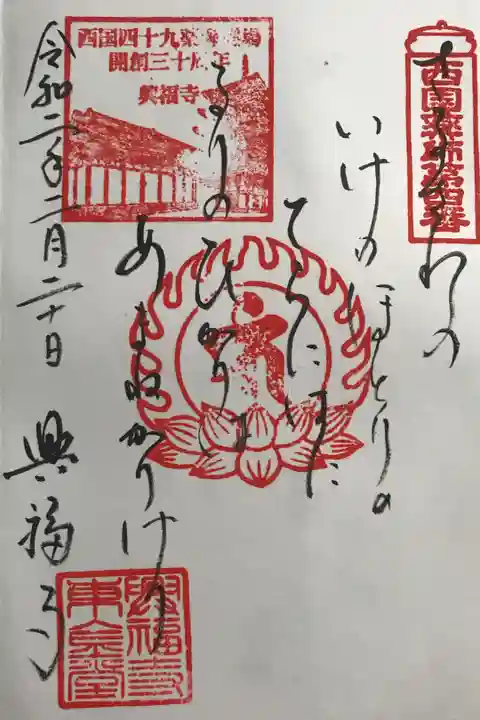 西国薬師第四番
さるさわの
いけのほとりの
てらに
るりのひかり
あまねかりけり
西国四十九薬師霊場
開創三十周年
興福寺
令和二年二月二十日
興福寺
興福寺
東金堂